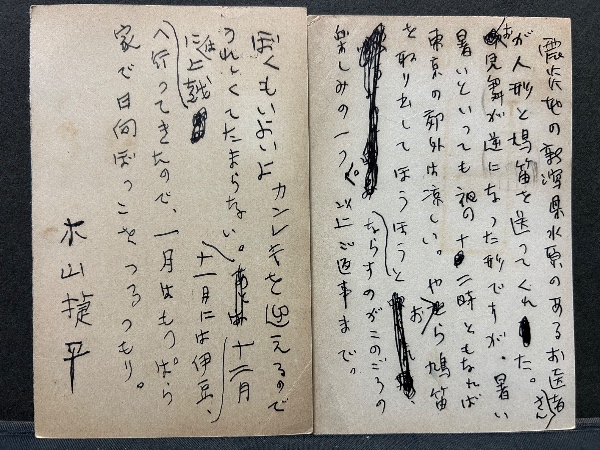 震災地の新潟県水原のあるお医者さん
が人形と鳩笛を送ってくれた。
お見舞が逆になった形ですが、暑い
暑いといっても夜の十二時ともなれば
東京の郊外は涼しい。やおら鳩笛
を取り出してほうほうと
ならすのがこのごろの
楽しみの一つ。以上ご返事まで。
ぼくもいよいよカンレキを迎えるので
うれしくてたまらない。十一月には伊豆、十二月
には上越
へ行ってきたので、一月はもっぱら
家で日向ぼっこをするつもり。
木山捷平